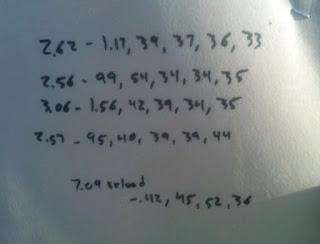 2.62 - 1.17, 39, 37, 36, 33
2.56 - 99, 54, 34, 34, 35
3.06 - 1.56, 42, 39, 34, 35
2.57 - 95, 40, 39, 39, 44
7.09 reload
- .42, 45, 52, 36